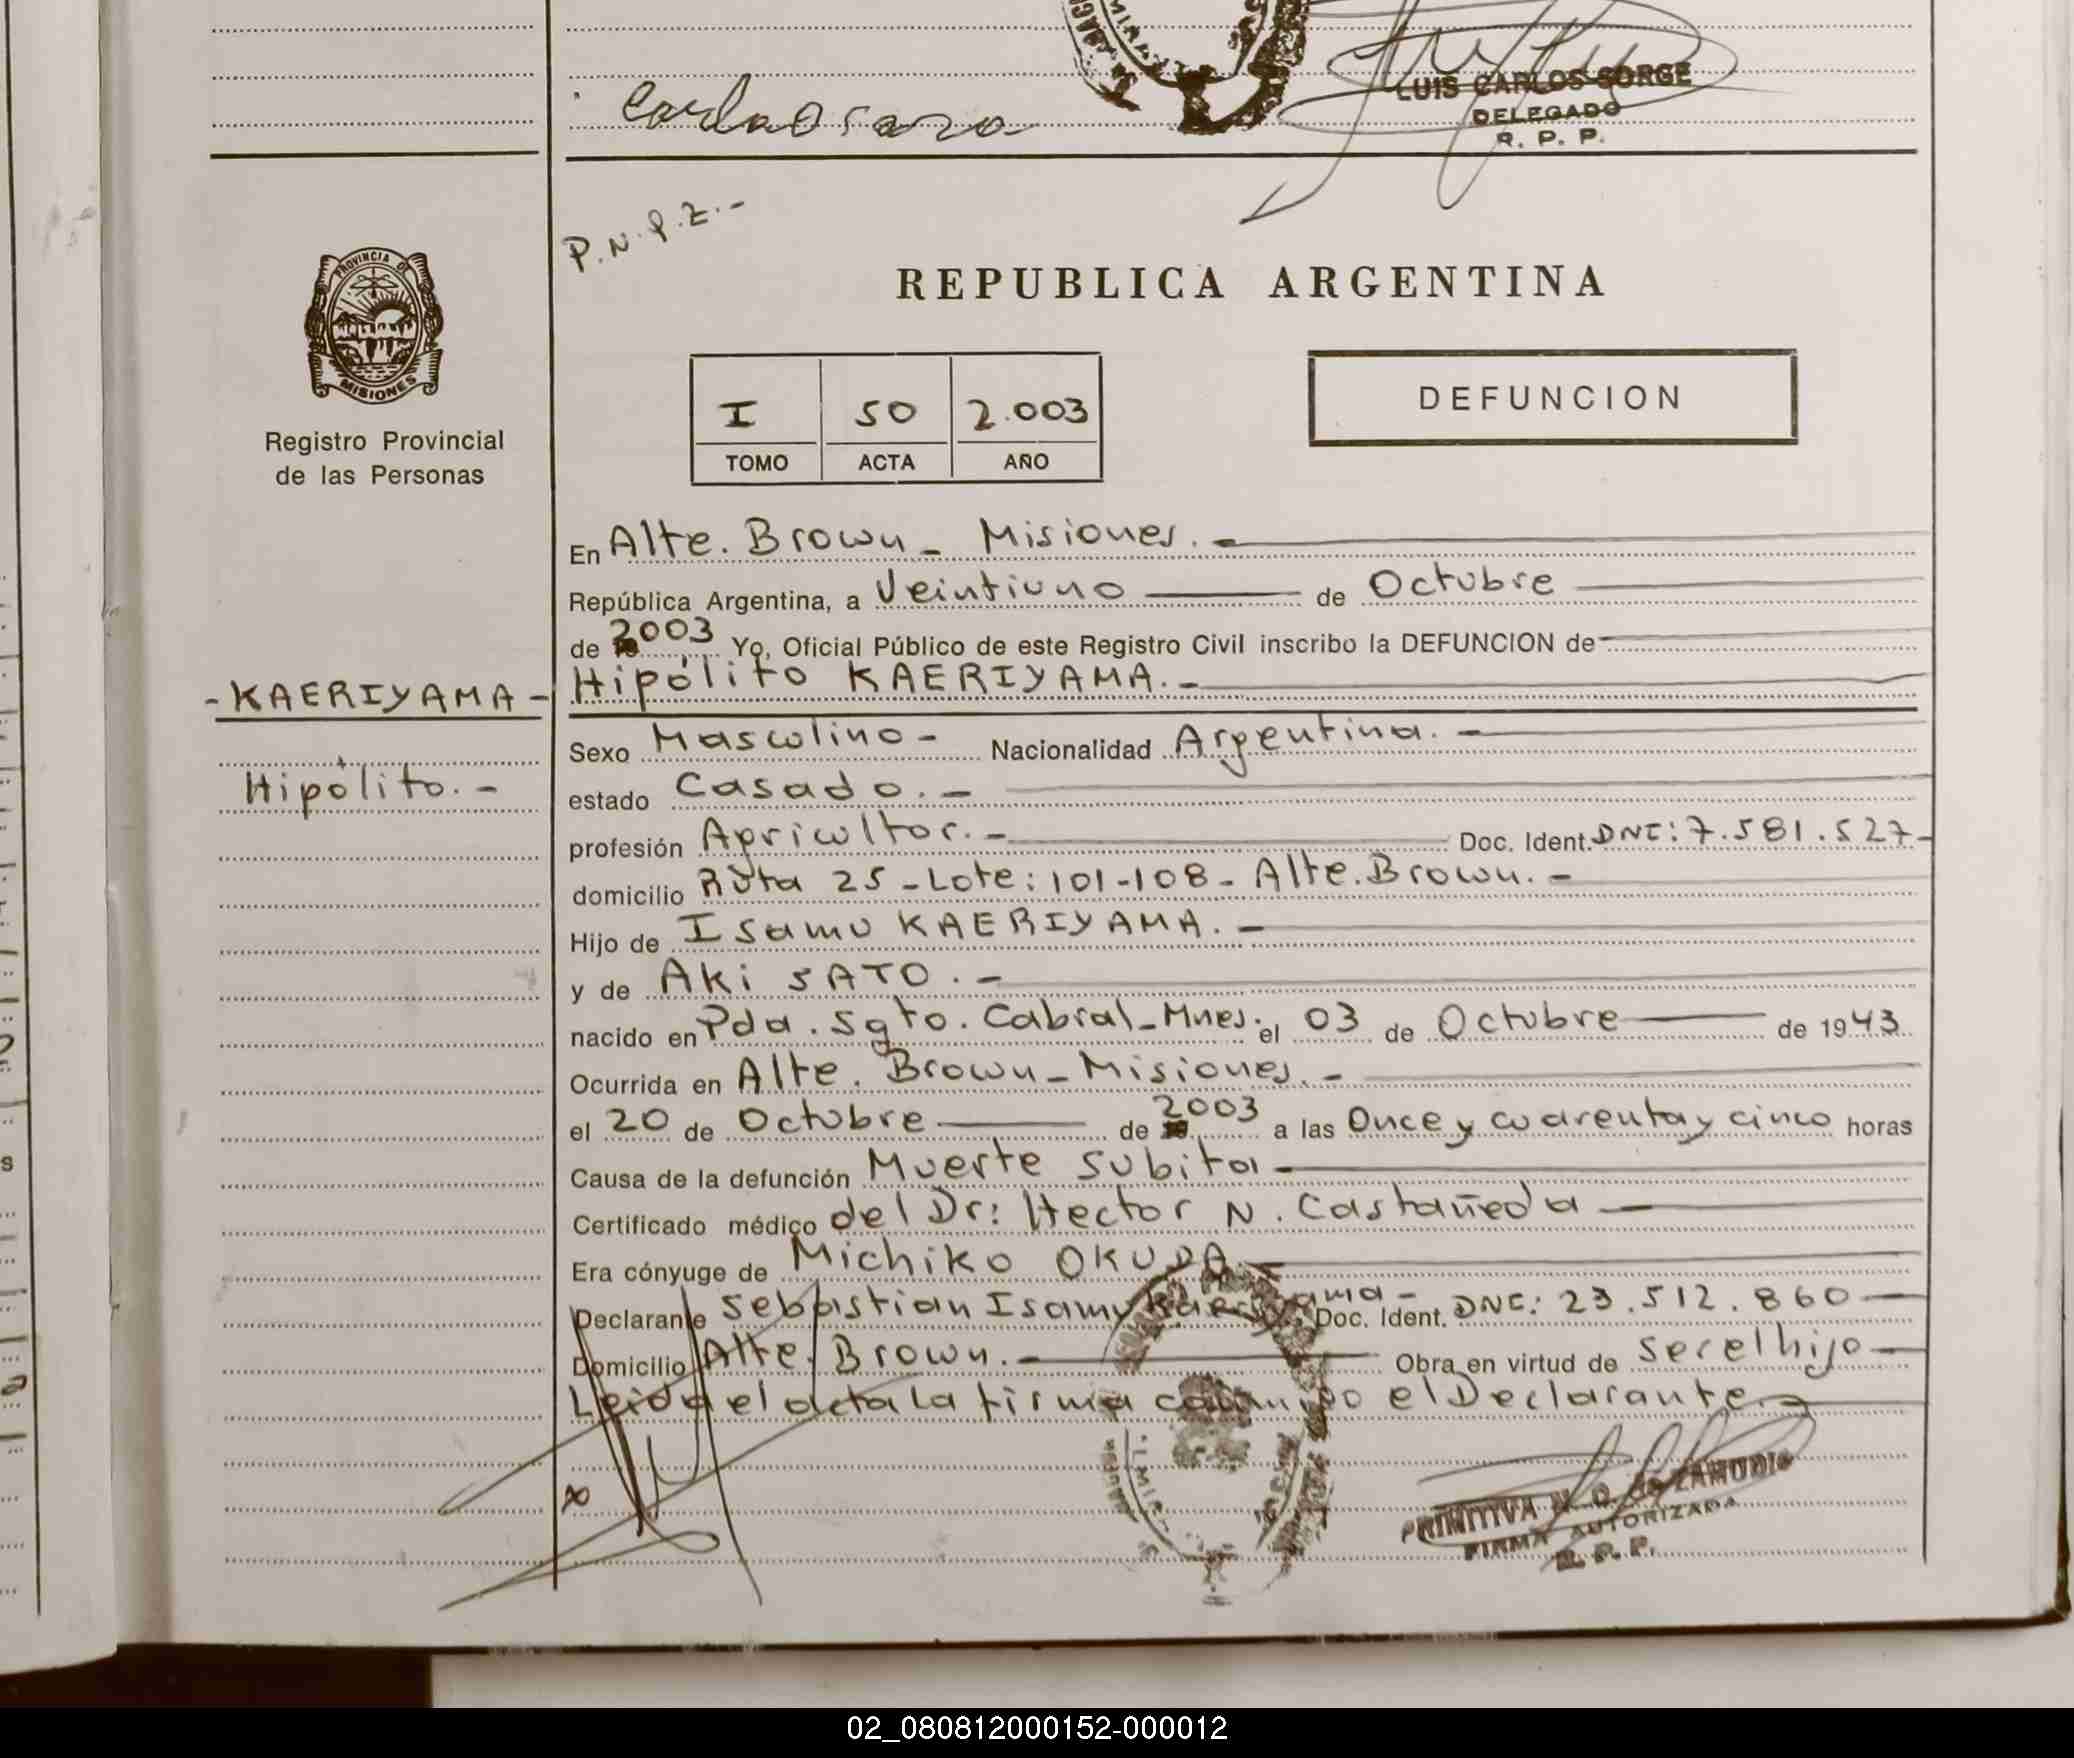 LUIS CARLOS SORGE
DELEGADO
R. P. P.
P.N.P.Z.-
PROVINCIA DE
MISIONES
Registro Provincial
de las Personas
REPUBLICA ARGENTINA
I 50 2.003
TOMO ACTA AÑO
DEFUNCION
En Alte. Brown - Misiones.-
República Argentina, a Veintiuno de Octubre
de 2003 Yo, Oficial Público de este Registro Civil inscribo la DEFUNCION de
-KAERIYAMA- Hipólito KAERIYAMA.-
Sexo Masculino- Nacionalidad Argentina.-
Hipólito.-
estado Casado.-
profesión Agricultor.- Doc. Ident. DNI: 7.581.527-
domicilio Ruta 25 - Lote: 101-108 - Alte. Brown.-
Hijo de Isamu KAERIYAMA.-
y de Aki SATO.-
nacido en Pda. Sgto. Cabral - Mnes. el 03 de Octubre de 1943
Ocurrida en Alte. Brown - Misiones.-
el 20 de Octubre de 2003 a las Once y cuarenta y cinco horas
Causa de la defunción Muerte subita-
Certificado médico del Dr: Hector N. Castañeda
Era cónyuge de Michiko OKUDA
Declarante Sebastian Isamu Kaeriyama- Doc. Ident. DNI: 23.512.860
Domicilio Alte. Brown.- Obra en virtud de ser el hijo
Leida el acta la firma conmigo el Declarante.-
x
PRIMITIVA de ZAMUDIO
FIRMA AUTORIZADA
R. P. P.
02_080812000152-000012